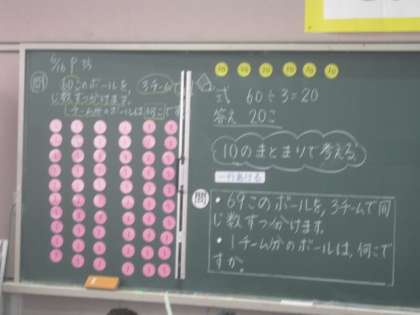 6/16 P.35
問
60このボールを、3チームで同
じ数ずつ分けます。
1チーム分のボールは、何こですか。
10 10 10 10 10 10
式 60÷3=20
答え 20こ
10のまとまりで考える。
一行あける
問
・69このボールを、3チームで同
じ数ずつ分けます。
・1チーム分のボールは、何こで
すか。